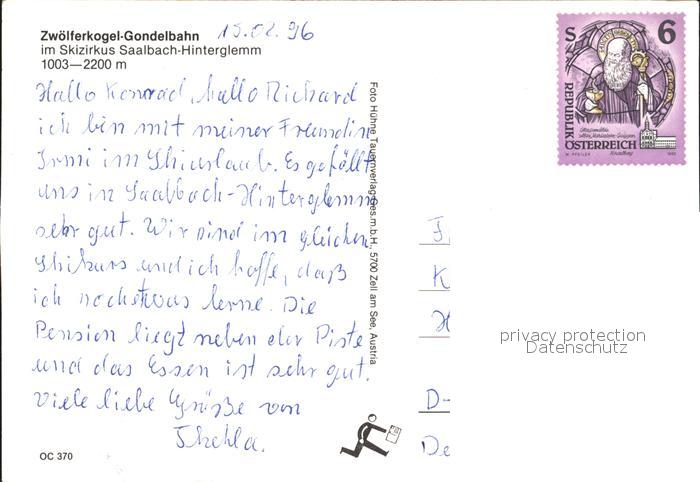 Zwölferkogel-Gondelbahn
im Skizirkus Saalbach-Hinterglemm
1003—2200 m
15.02.96
Hallo Konrad, hallo Richard
ich bin mit meiner Freundin
Irmi im Skiurlaub. Es gefällt
uns in Saalbach-Hinterglemm
sehr gut. Wir sind im gleichen
Skikurs und ich hoffe, daß
ich noch etwas lerne. Die
Pension liegt neben der Piste
und das Essen ist sehr gut.
Viele liebe Grüße von
Thekla.
OC 370
Foto Hühne Tauernverlag Ges.m.b.H., 5700 Zell am See, Austria
S 6
REPUBLIK
ÖSTERREICH
F
K
H
D-
De
privacy protection
Datenschutz